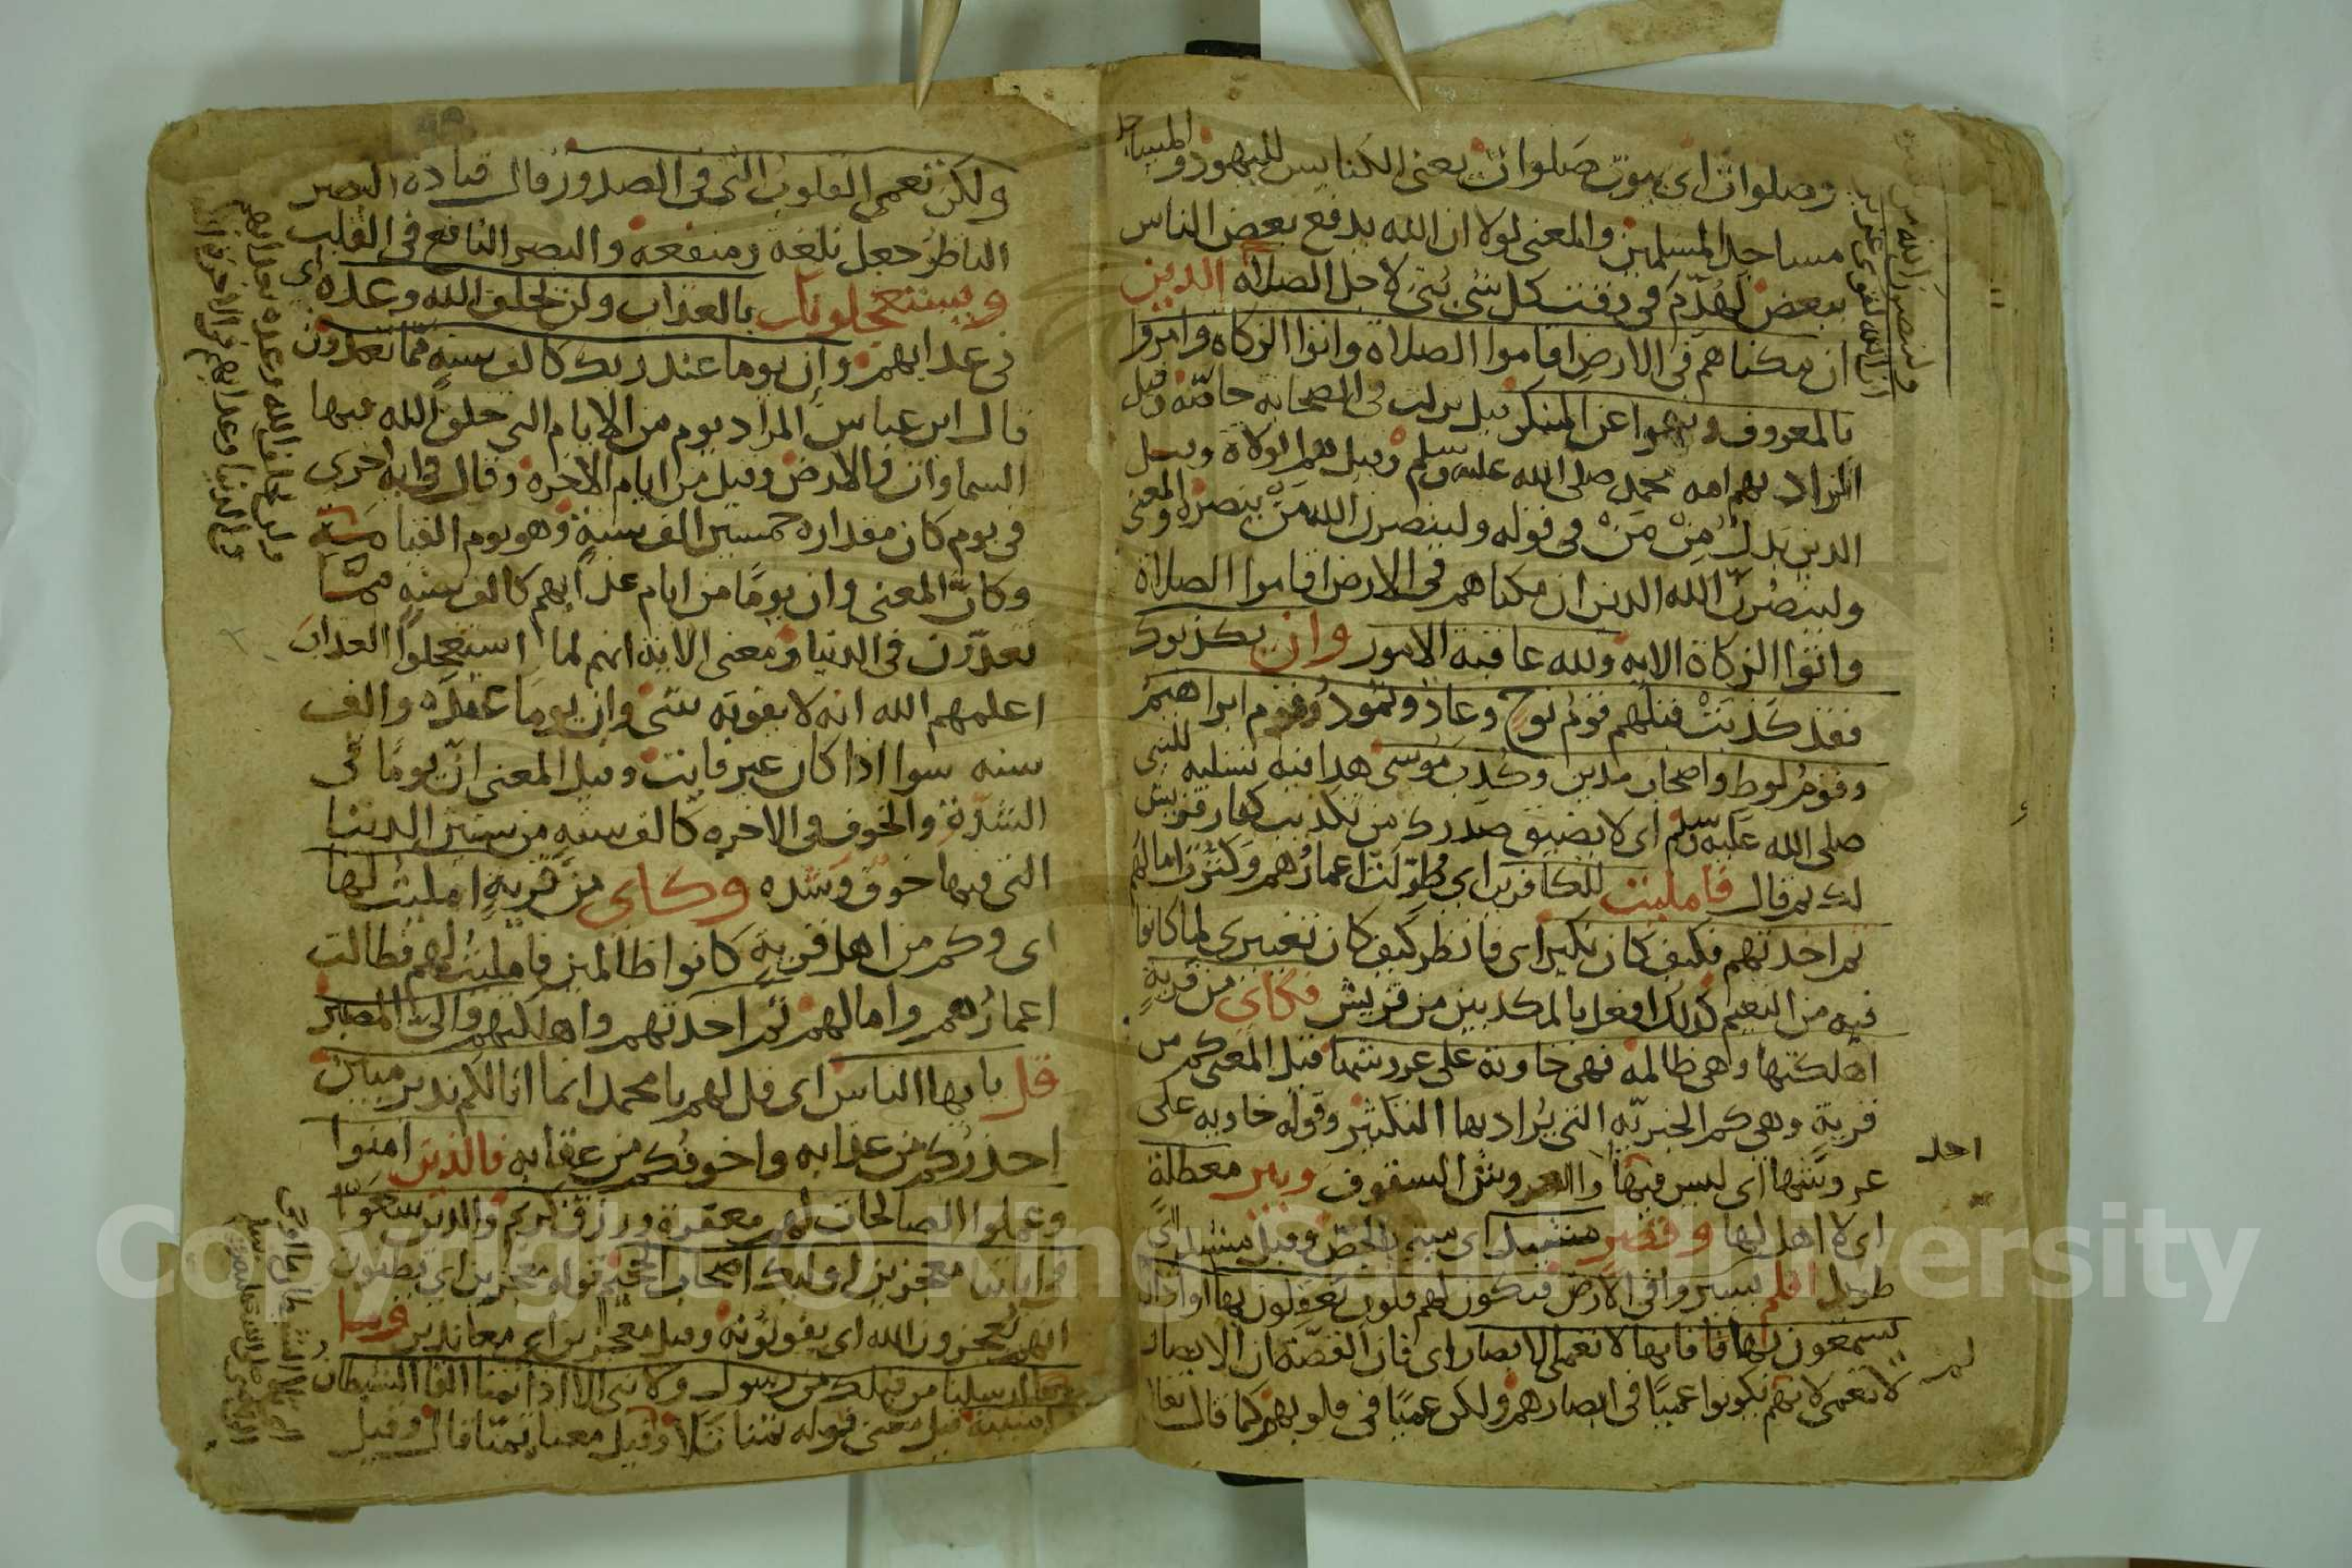 وصلوات اى بيوت صلوات يعنى الكنايس لليهود والمساجد
مساجد المسلمين والمعنى لولا ان الله يدفع بعض الناس
ببعض لهدّم فى وقت كل شى بنى لاجل الصلاه الذين
ان مكناهم فى الارض اقاموا الصلاة واتوا الزكاة وامروا
بالمعروف ونهوا عن المنكر قيل نزلت فى الصحابه خاصّه وقيل
المراد بهم امه محمد صلى الله عليه وسلم وقيل هم الولاة وقيل
الذين بدل من مَن فى قوله ولينصرن الله من ينصره والمعنى
ولينصرنّ الله الذين ان مكناهم فى الارض اقاموا الصلاة
واتوا الزكاة الايه ولله عاقبة الامور وان يكذبوك
فقد كذبت قبلهم قوم نوح وعاد وثمود وقوم ابراهيم
وقوم لوط واصحاب مدين وكذب موسى هذا فيه تسليه للنبى
صلى الله عليه وسلم اى لا يضيق صدرك من تكذيب كفار قريش
لك ثم قال فامليت للكافرين اى طوّلت اعمارهم وكثرت امالهم
ثم اخذتهم فكيف كان نكير اى فانظر كيف كان تغييرى لما كانوا
فيه من النعيم كذلك افعل بالمكذبين من قريش فكاى من قرية
اهلكتها وهى ظالمة فهى خاوية على عروشها قيل المعنى كم من
قرية وهى كم الخبريّه التى يُراد بها التكثير وقوله خاويه على
عروشها اى ليس فيها احد والعروش السقوف وبير معطلة
اى لا اهل لها وقصر مشيد اى مبنى بالجص وقيل مشيد اى
طويل افلم يسيروا فى الارض فتكون لهم قلوب يعقلون بها او اذان
يسمعون بها فانها لا تعمى الابصار اى فان القصّة ان الابصار
لا تعمى لانهم لم يكونوا عميًا فى ابصارهم ولكن عميًا فى قلوبهم كما قال تعا
احد
لم
ولينصرن الله من
ان الله لقوى عزيز
ولكن تعمى القلوب التى فى الصدور قال قتادة البصر
الناظر جعل بلغة ومنفعه والبصر النافع فى القلب
ويستعجلونك بالعذاب ولن يخلف الله وعده اى
فى عذابهم وان يوما عند ربك كالف سنه مما تعدون
قال ابن عباس المراد يوم من الايام التى خلق الله فيها
السماوات والارض وقيل من ايام الاخره وقال فى ايه اخرى
فى يوم كان مقداره خمسين الف سنة وهو يوم القيامة
وكانّ المعنى وان يومًا من ايام عذابهم كالف سنه ممّا
تعدّون فى الدنيا ومعنى الاية انهم لما استعجلوا العذاب
اعلمهم الله انه لا يفوته شى وان يوما عنده والف
سنه سوا اذا كان غير فايت وقيل المعنى انّ يومًا فى
الشدّة والخوف فى الاخره كالف سنه من سنين الدنيا
التى فيها خوف وشده وكاى من قرية امليت لها
اى وكم من اهل قرية كانوا ظالمين فامليت لهم فطالت
اعمارهم وامالهم ثم اخذتهم واهلكتهم والىّ المصير
قل يايها الناس اى قل لهم يا محمد انما انا لكم نذير مبين
احذركم من عذابه واخوفكم من عقابه فالذين امنوا
وعملوا الصالحات لهم مغفرة ورزق كريم والذين سعوا
فى اياتنا معجزين اوليك اصحاب الجحيم قوله معجزين اى يظنون
انهم يعجزون الله اى يفوتونه وقيل معجزين اى معاندين وما
ارسلنا من قبلك من رسول ولا نبى الا اذا تمنا القا الشيطان
امنيته قيل معنى قوله تمنا تلا وقيل معناه تمنّا قال وقيل
Copyright © King Saud University